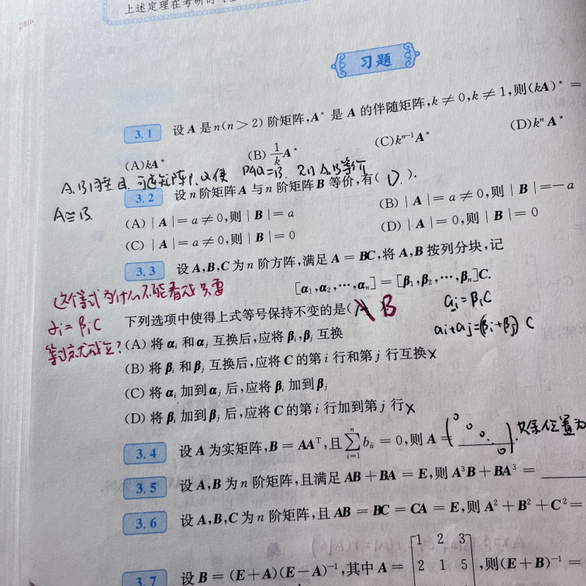 上述定理在考研
习题
3.1 设 A 是 n(n>2) 阶矩阵, A* 是 A 的伴随矩阵, k≠0, k≠1, 则(kA)* =
(A) kA* (B) 1/k A* (C) k^{n-1}A* (D) k^n A*
A,B同型 可逆矩阵P,Q使 PAQ=B 则A,B等价
A≅B
3.2 设 n 阶矩阵 A 与 n 阶矩阵 B 等价,有( D ).
(A) |A|=a≠0,则|B|=a (B) |A|=a≠0,则|B|=-a
(C) |A|=a≠0,则|B|=0 (D) |A|=0,则|B|=0
3.3 设 A,B,C 为 n 阶方阵,满足 A=BC,将 A,B 按列分块,记
[α₁,α₂,…,αₙ]=[β₁,β₂,…,βₙ]C.
这个等式为什么不能看成只要
αi=βiC
等式就成立?
αi=βiC
αi+αj=(βi+βj)C
下列选项中使得上式等号保持不变的是( A B
(A) 将 αᵢ 和 αⱼ 互换后,应将 βᵢ,βⱼ 互换
(B) 将 βᵢ 和 βⱼ 互换后,应将 C 的第 i 行和第 j 行互换×
(C) 将 αᵢ 加到 αⱼ 后,应将 βᵢ 加到 βⱼ
(D) 将 βᵢ 加到 βⱼ 后,应将 C 的第 i 行加到第 j 行×
3.4 设 A 为实矩阵,B=AAᵀ,且 ∑_{i=1}^{n} bᵢᵢ=0,则 A= (0 0 0. 0). 其余位置为
3.5 设 A,B 为 n 阶矩阵,且满足 AB+BA=E,则 A³B+BA³=
3.6 设 A,B,C 为 n 阶矩阵,且 AB=BC=CA=E,则 A²+B²+C²=
3.7 设 B=(E+A)(E-A)⁻¹,其中 A= [1 2 3
2 1 5 ,则(E+B)⁻¹=